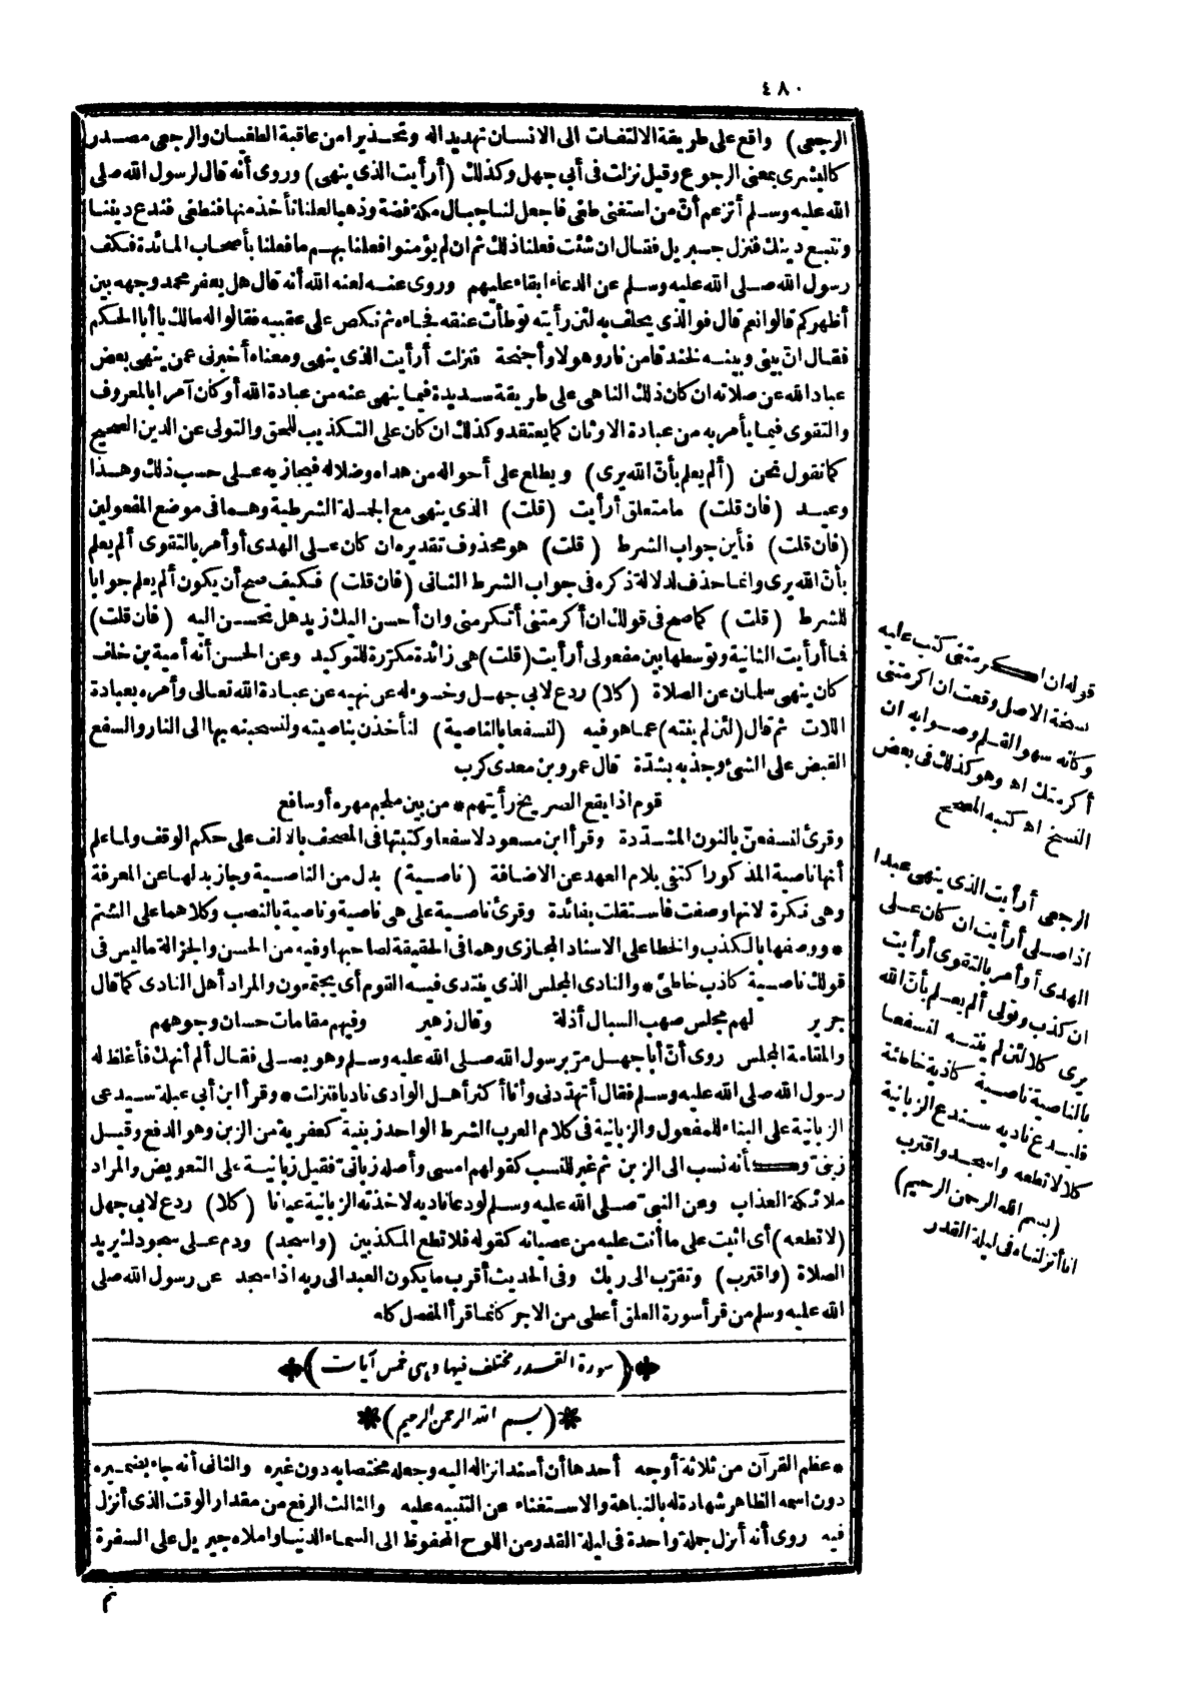 ٤٨٠
الرجعى) واقع على طريقة الالتفات الى الانسان تهديدا له وتحذيرا من عاقبة الطغيان والرجعى مصدر
كالبشرى بمعنى الرجوع وقيل نزلت فى أبى جهل وكذلك (أرأيت الذى ينهى) وروى أنه قال لرسول الله صلى
الله عليه وسلم أتزعم أنّ من استغنى طغى فاجعل لنا جبال مكة فضة وذهبا لعلنا نأخذ منها فنطغى فندع ديننا
ونتبع دينك فنزل جبريل فقال ان شئت فعلنا ذلك ثم ان لم يؤمنوا فعلنا بهم ما فعلنا بأصحاب المائدة فكف
رسول الله صلى الله عليه وسلم عن الدعاء ابقاء عليهم وروى عنه لعنه الله أنه قال هل يعفر محمد وجهه بين
أظهركم قالوا نعم قال فوالذى يحلف به لئن رأيته توطأت عنقه فجاءه ثم نكص على عقبيه فقالوا له مالك يا أبا الحكم
فقال انّ بينى وبينه لخندقا من نار وهولا وأجنحة فنزلت أرأيت الذى ينهى ومعناه أخبرنى عمن ينهى بعض
عباد الله عن صلاته ان كان ذلك الناهى على طريقة سديدة فيما ينهى عنه من عبادة الله أو كان آمرا بالمعروف
والتقوى فيما يأمر به من عبادة الاوثان كما يعتقد وكذلك ان كان على التكذيب للحق والتولى عن الدين الصحيح
كما نقول نحن (ألم يعلم بأنّ الله يرى) ويطلع على أحواله من هداه وضلاله فيجازيه على حسب ذلك وهذا
وعيد (فان قلت) ما متعلق أرأيت (قلت) الذى ينهى مع الجملة الشرطية وهما فى موضع المفعولين
(فان قلت) فأين جواب الشرط (قلت) هو محذوف تقديره ان كان على الهدى أو أمر بالتقوى ألم يعلم
بأنّ الله يرى وانما حذف لدلالة ذكره فى جواب الشرط الثانى (فان قلت) فكيف صح أن يكون ألم يعلم جوابا
للشرط (قلت) كما صح فى قولك ان أكرمتنى أتكرمنى وان أحسن اليك زيد هل تحسن اليه (فان قلت)
فما أرأيت الثانية وتوسطها بين مفعولى أرأيت (قلت) هى زائدة مكررة للتوكيد وعن الحسن أنه أمية بن خلف
كان ينهى سلمان عن الصلاة (كلا) ردع لابى جهل وخسوء له عن نهيه عن عبادة الله تعالى وأمره بعبادة
اللات ثم قال (لئن لم ينته) عما هو فيه (لنسفعا بالناصية) لنأخذن بناصيته ولنسحبنه بها الى النار والسفع
القبض على الشئ وجذبه بشدّة قال عمرو بن معدى كرب
قوم اذا يقع الصريخ رأيتهم * من بين ملجم مهره أو سافع
وقرئ لنسفعنّ بالنون المشدّدة وقرأ ابن مسعود لاسفعا وكتبتها فى المصحف بالالف على حكم الوقف ولما علم
أنها ناصية المذكور اكتفى بلام العهد عن الاضافة (ناصية) بدل من الناصية وجاز بدلها عن المعرفة
وهى نكرة لانها وصفت فاستقلت بفائدة وقرئ ناصية على هى ناصية وناصية بالنصب وكلاهما على الشتم
* ووصفها بالكذب والخطا على الاسناد المجازى وهما فى الحقيقة لصاحبها وفيه من الحسن والجزالة ما ليس فى
قولك ناصية كاذب خاطئ * والنادى المجلس الذى ينتدى فيه القوم أى يجتمعون والمراد أهل النادى كما قال
جرير لهم مجلس صهب السبال أذلة وقال زهير وفيهم مقامات حسان وجوههم
والمقامة المجلس روى أنّ أبا جهل مرّ برسول الله صلى الله عليه وسلم وهو يصلى فقال ألم أنهك فأغلظ له
رسول الله صلى الله عليه وسلم فقال أتهدّدنى وأنا أكثر أهل الوادى ناديا فنزلت * وقرأ ابن أبى عبلة سيدعى
الزبانية على البناء للمفعول والزبانية فى كلام العرب الشرط الواحد زبنية كعفرية من الزبن وهو الدفع وقيل
زبنىّ وكأنه نسب الى الزبن ثم غير للنسب كقولهم امسى وأصله زبانىّ فقيل زبانية على التعويض والمراد
ملائكة العذاب وعن النبىّ صلى الله عليه وسلم لو دعا ناديه لاخذته الزبانية عيانا (كلا) ردع لابى جهل
(لا تطعه) أى اثبت على ما أنت عليه من عصيانه كقوله فلا تطع المكذبين (واسجد) ودم على سجودك يريد
الصلاة (واقترب) وتقرّب الى ربك وفى الحديث أقرب ما يكون العبد الى ربه اذا سجد عن رسول الله صلى
الله عليه وسلم من قرأ سورة العلق أعطى من الاجر كأنما قرأ المفصل كله
(سورة القدر مختلف فيها وهى خمس آيات)
(بسم الله الرحمن الرحيم)
* عظم القرآن من ثلاثة أوجه أحدها أن أسند انزاله اليه وجعله مختصا به دون غيره والثانى أنه جاء بضميره
دون اسمه الظاهر شهادة له بالنباهة والاستغناء عن التنبيه عليه والثالث الرفع من مقدار الوقت الذى أنزل
فيه روى أنه أنزل جملة واحدة فى ليلة القدر من اللوح المحفوظ الى السماء الدنيا واملاه جبريل على السفرة
ثم
قوله ان اكرمتنى كتب عليه
نسخة الاصل وقعت ان اكرمتنى
وكأنه سهو القلم وصوابه ان
أكرمتك اه وهو كذلك فى بعض
النسخ اه كتبه المصحح
الرجعى أرأيت الذى ينهى عبدا
اذا صلى أرأيت ان كان على
الهدى أو أمر بالتقوى أرأيت
ان كذب وتولى ألم يعلم بأنّ الله
يرى كلا لئن لم ينته لنسفعا
بالناصية ناصية كاذبة خاطئة
فليدع ناديه سندع الزبانية
كلا لا تطعه واسجد واقترب
(بسم الله الرحمن الرحيم)
انا أنزلناه فى ليلة القدر